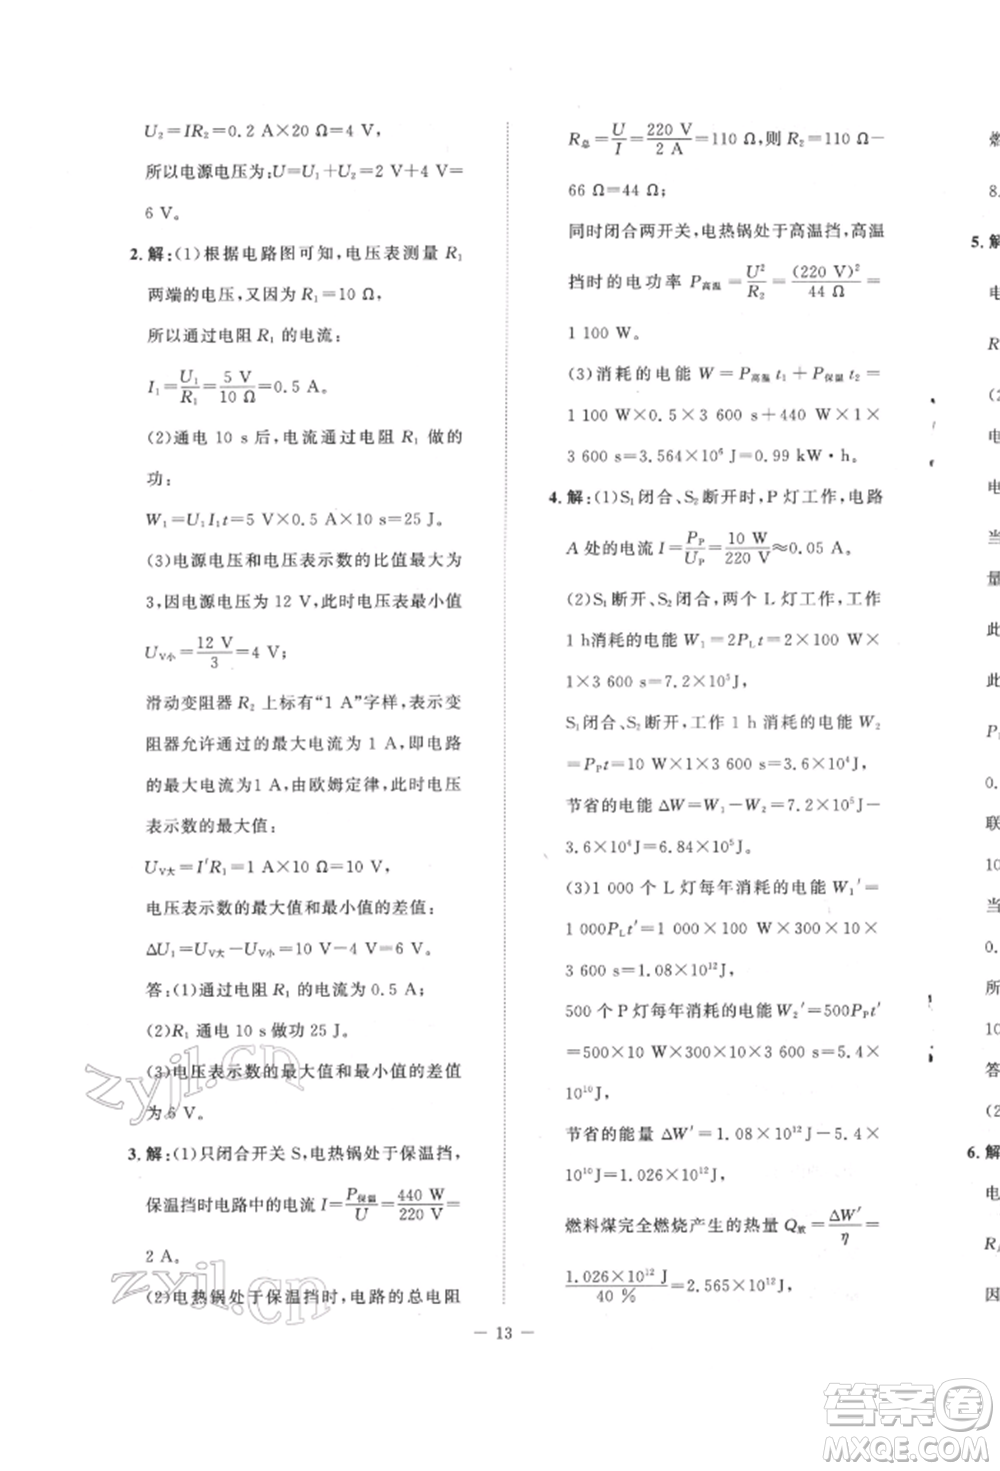 U₂=IR₂=0.2 A×20 Ω=4 V,
所以电源电压为:U=U₁+U₂=2 V+4 V=
6 V。
2. 解:(1)根据电路图可知,电压表测量 R₁
两端的电压,又因为 R₁=10 Ω,
所以通过电阻 R₁ 的电流:
I₁=U₁/R₁=5 V/10 Ω=0.5 A。
(2)通电 10 s 后,电流通过电阻 R₁ 做的
功:
W₁=U₁I₁t=5 V×0.5 A×10 s=25 J。
(3)电源电压和电压表示数的比值最大为
3,因电源电压为 12 V,此时电压表最小值
U_V小=12 V/3=4 V;
滑动变阻器 R₂ 上标有“1 A”字样,表示变
阻器允许通过的最大电流为 1 A,即电路
的最大电流为1 A,由欧姆定律,此时电压
表示数的最大值:
U_V大=I′R₁=1 A×10 Ω=10 V,
电压表示数的最大值和最小值的差值:
ΔU₁=U_V大−U_V小=10 V−4 V=6 V。
答:(1)通过电阻 R₁ 的电流为 0.5 A;
(2)R₁ 通电 10 s 做功 25 J。
(3)电压表示数的最大值和最小值的差值
为 6 V。
3. 解:(1)只闭合开关 S,电热锅处于保温挡,
保温挡时电路中的电流 I=P保温/U=440 W/220 V=
2 A。
(2)电热锅处于保温挡时,电路的总电阻
R总=U/I=220 V/2 A=110 Ω,则 R₂=110 Ω−
66 Ω=44 Ω;
同时闭合两开关,电热锅处于高温挡,高温
挡时的电功率 P高温=U²/R₂=(220 V)²/44 Ω=
1 100 W。
(3)消耗的电能 W=P高温 t₁+P保温 t₂=
1 100 W×0.5×3 600 s+440 W×1×
3 600 s=3.564×10⁶ J=0.99 kW·h。
4. 解:(1)S₁闭合、S₂断开时,P 灯工作,电路
A 处的电流 I=P_P/U_P=10 W/220 V≈0.05 A。
(2)S₁断开、S₂闭合,两个 L 灯工作,工作
1 h消耗的电能 W₁=2P_Lt=2×100 W×
1×3 600 s=7.2×10⁵J,
S₁闭合、S₂断开,工作 1 h 消耗的电能 W₂
=P_Pt=10 W×1×3 600 s=3.6×10⁴J,
节省的电能 ΔW=W₁−W₂=7.2×10⁵J−
3.6×10⁴J=6.84×10⁵J。
(3)1 000 个 L 灯每年消耗的电能 W₁′=
1 000P_Lt′=1 000×100 W×300×10×
3 600 s=1.08×10¹²J,
500 个 P 灯每年消耗的电能 W₂′=500P_Pt′
=500×10 W×300×10×3 600 s=5.4×
10¹⁰J,
节省的能量 ΔW′=1.08×10¹²J−5.4×
10¹⁰J=1.026×10¹²J,
燃料煤完全燃烧产生的热量 Q放=ΔW′/η=
1.026×10¹² J/40 %=2.565×10¹²J,
燃
8.
5. 解
电
R
(2
电
电
当
量
此
此
P
0.
联
10
当
0.
所
10
答
(2
6. 解
电
R
因
— 13 —
zyjl.cn
zyjl.cn
答案圈
MXQE.COM